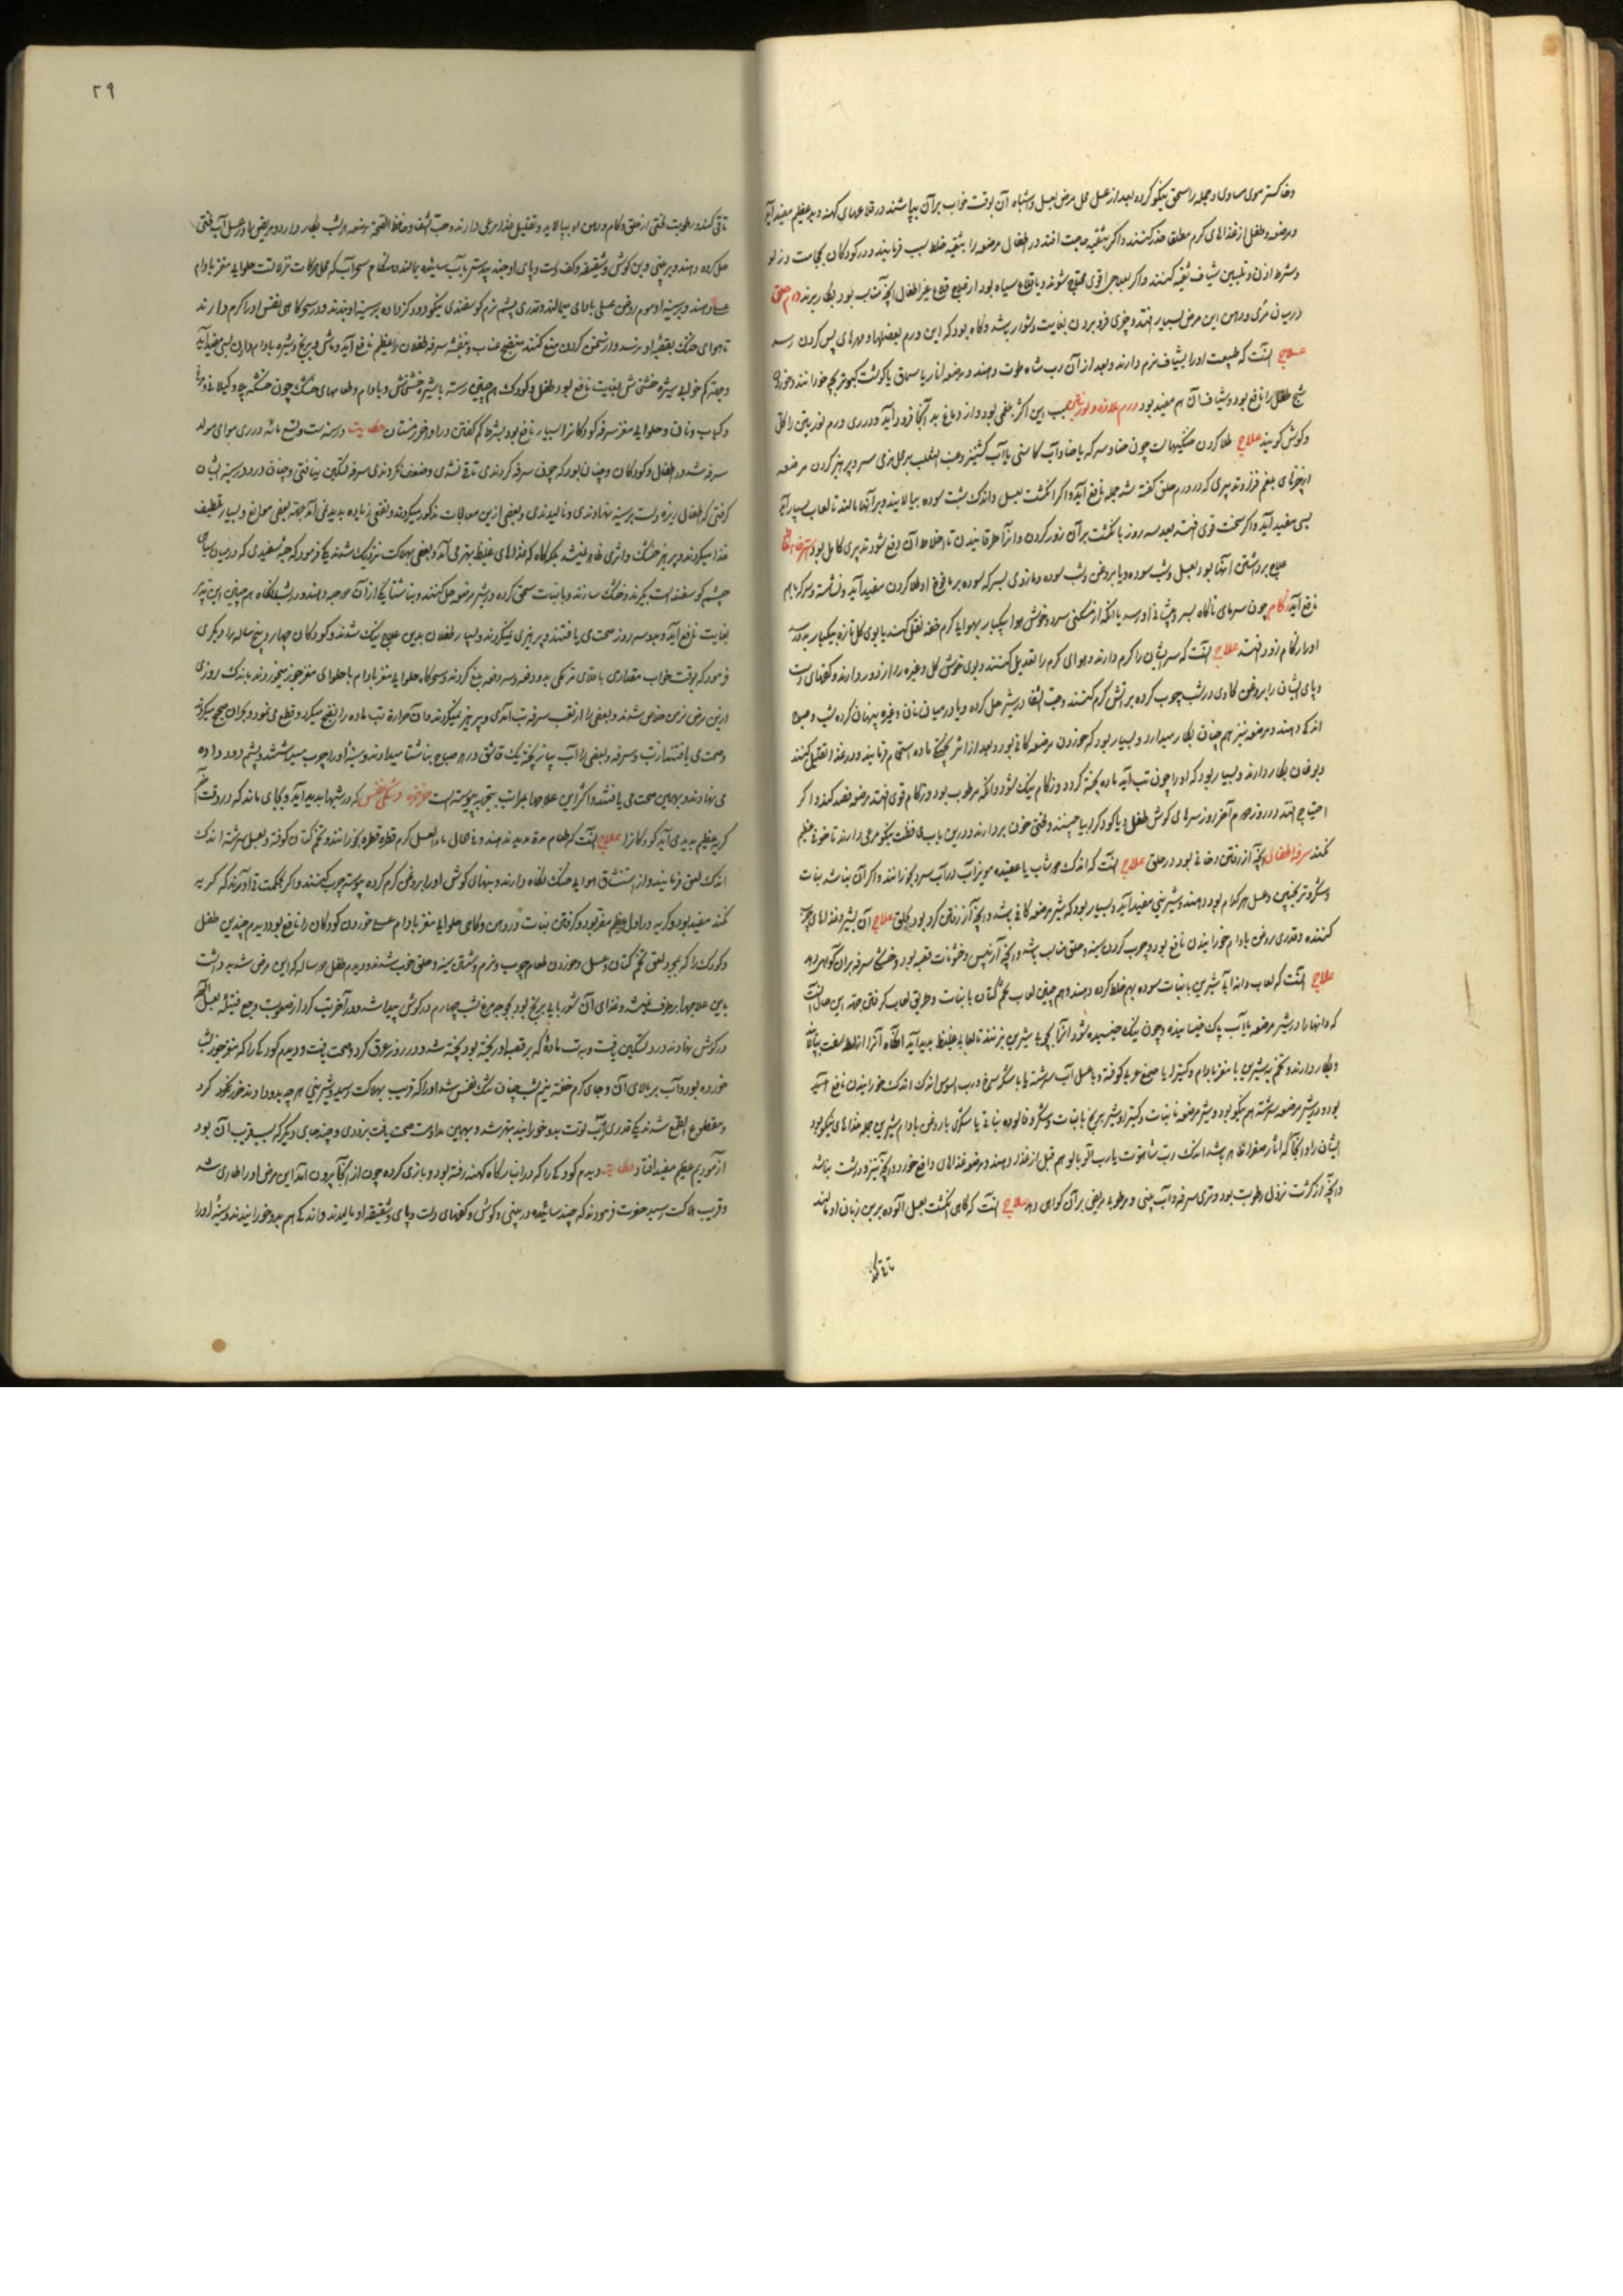 وخاکستر موی مساوی و جمله را سحق نیکو کرده بعد از غسل محل مرض بعسل و اشباه آن بوقت خواب بر آن بپاشند در قلاعهای کهنه و بد عظیم مفید آید
و مرضعه و طفل از غذاهای کرم مطلق حذر کنند و اکر بتنقیه حاجت افتد در اطفال مرضعه را بتنقیه خلط سبب فرمایند و در کودکان بحجامت و زلو
و شرط اذن و تلیین شیاف تنقیه کنند و اکر بعلاجی قوی محتاج شوند و یا قلاع سیاه بود از قلاع غیر اطفال انچه مناسب بود بکار برند ورم حلق
در میان مری و دهن این مرض بسیار افتد و چیزی فرو بردن بغایت دشوار باشد و کاه بود که این ورم بعضلها و مهرهای پس کردن رسد
علاج آنست که طبیعت او را بشیاف نرم دارند و بعد از آن رب شاه توت دهند و مرضعه انار یا سماق با کوشت کبوتر بچه خورانند
طفل را نافع بود و شیاف آن هم مفید بود ورم ملازه و لوزتین سبب این اکثر بلغمی بود و از دماغ بد آنجا فرود آید و ورم لوزتین را کل
و کوش کویند علاج طلا کردن خشکیهاست چون حنا و سرکه یا حنا و آب کاسنی یا آب کشنیز و عنب الثعلب بر محل نرمی سر و پرهیز کردن مرضعه
از چیزهای بلغم فزا و تدبیری که در ورم حلق گفته شد جمله نافع آید و اکر انکشت بعسل و اندک شب سوده بیالایند و بر آنها مالند تا لعاب بسیار آید
بسی مفید آید و اکر سخت قوی افتد بعد سه روز بانکشت بر آن زور کردن و از آن طرقانیدن تا اخلاط آن دفع شود تدبیری کامل بود
علاج برداشتن آنها بود بعسل و شب سوده و یا بروغن و شب سوده و مازوی بسرکه سوده بر یافوخ او طلا کردن مفید آید و نشاسته و سرکه با هم
نافع آید زکام چون سرمای ناکاه بسر و پشانی او رسد یا انکه از مسکنی سرد و خوش هوا بیکبار بهوای کرم خفه نقل کند یا بوی کل تازه بیکبار بدو رسد
او را زکام زود افتد علاج آنست که سر ایشان را کرم دارند و هوای کرم را تعدیل کنند و بوی خوش کل و غیره را از او دور دارند و کفهای دست
و پای ایشان را بروغن کاوی در شب چرب کرده بر آتش کرم کنند و حب الشفا در شیر حل کرده و یا در میان نان و غیره پنهان کرده شب و صباح
اندکی دهند و مرضعه نیز هم چنان بکار میدارد و بسیار بود که خوردن مرضعه کافی بود و بعد از اثر پختکی ماده استحمام فرمایند و در غذا تقلیل کنند
و بسیار بود که او را چون تب آید ماده پخته کردد و زکام نیک شود و انکه مرطوب بود و زکام قوی افتد مرضعه فصد کند و اکر
احتیاج افتد در روز دوم آخر روز سرهای کوش طفل و یا کودک را بیاچینند و لختی خون بردارند و درین باب محافظت نیکو مرعی دارند تا خونی عظیم
نکند سرفه اطفال آنچه از رفتن دخانی بود در حلق علاج آنست که اندک دوشاب یا عقیده مویزآب در آب سرد بخورانند و اکر آن نباشد نبات
و شکر و ترنجبین و عسل هر کدام بود دهند و شیرینی مفید آید و بسیار بود که شیر مرضعه کافی باشد و آنچه از رفتن کرد بود بحلق علاج آن شیر و غذاهای چرب
کننده و قدری روغن بادام خورانیدن نافع بود و چرب کردن سینه و حلق مناسب باشد و آنچه از یبس و خشونت قصبه بود و خشکی سرفه بر آن کواهی دهد
علاج آنست که لعاب دانه ابی شیرین با نبات سوده بهم خلط کرده دهند و هم چنین لعاب تخم کتان با نبات و طریق لعاب کرفتن جهت این حال آنست
که دانها را در شیر مرضعه یا آب پاک خیسانیده و چون نیک خیسیده شود آنرا بچوبی شیرین بزنند تا لعابی غلیظ بدید آید آنکاه آنرا از غلط لیف پالوده
و بکار دارند و تخم به شیرین با مغز بادام و کتیرا یا صمغ عربی کوفته و با عسل آب سرشته یا با شکر سرخ و رب السوس اندک اندک خورانیدن نافع آید
بود و در شیر مرضعه سرشته هم نیکو بود و شیر مرضعه با نبات و کتیرا و شیر برنج با نبات و شکر و فالوده نباتی یا شکری با روغن بادام شیرین جمله غذاهای نیکو بود
ایشان را و آنجا که آثار صفرا ظاهر باشد اندک رب شاه توت یا رب آلوبالو هم قبل از غذا دهند و مرضعه غذاهای دافع خورد و آنچه تیز و درشت نباشد
و آنچه از کثرت نزول رطوبت بود و تری سرفه و آب بینی و مرطوبی مریض بر آن کواهی دهد علاج آنست که کاهی انکشت بعسل آلوده بر بن زبان او مالند
تا قی کند
٢٩
تا قی کند و رطوبت لختی از حلق و کام و دهن او بپالاید و تقلیل غذا مرعی دارند و حب الشفا و حافظ الصحة مرضعه هر شب بکار دارد و مریض را در عسل آب لختی
حل کرده دهند و بر بینی و بن کوش و شقیقه و کف دست و پای او جند بیدستر بآب سائیده بمالند و هنکام سحر آب که محل حرکات نزله است حلوای مغز بادام
عسلی دهند و بر سینه او موم روغن عسلی بادامی میمالند و قدری پشم نرم کوسفندی نیکو دود کزداده بر سینه او بندند و در سحرکاهی نفس او را کرم دارند
تا هوای خنک بقصبه او نرسد و از سخن کردن منع کنند مطبخ عناب و بنفشه سرفه طفلان را عظیم نافع آید و ماش و برنج و شیره بادام دادن بسی مفید آید
و جهت کم خوابی شیره خشخاش بغایت نافع بود طفل و کودک را هم چنین رشته با شیره خشخاش و بادام و طعامهای خشک چون خشکه پلاو کیلانی و مرغ
و کباب و نان و حلوای مغز سرفه کودکان را بسیار نافع بود بشرط کم کفتن در اواخر زمستان حکایت در سنه ست و تسع مائه در ری هوای مولد
سرفه شد و اطفال و کودکان و جنان بود که چون سرفه کردندی تا قی نشدی و ضعف نکردندی سرفه تسکین نیافتی و چنان درد در سینه ایشان
کرفتی که اطفال ریزه دست بر سینه نهادندی و نالیدندی و بعضی ازین معالجات مذکور میکردند و نفعی زیاده بدید نمی آمد جهت بعضی موانع و بسیار تلطیف
غذا میکردند و پرهیز خشک و اثری ظاهر نمیشد بلکه کاه که غذاهای غلیظ بهتر می آمد و بعضی بهلاکت نزدیک شدند یکی فرمود که حبه سفیدی که در میان سیاهی
چشم کوسفند است بگیرند و خشک سازند و با نبات سحق کرده در شیر مرضعه حل کنند و بناشتا یکی از آن هر حبه دهند و در شبانکاه هم چنین این تدبیر
بغایت نافع آید و بعد سه روز صحت می یافتند و پرهیزی نمیکردند و بسیار طفلان بدین علاج نیک شدند و کودکان چهار و پنج ساله را دیکری
فرمود که بوقت خواب مقداری باقلای ترکی بدو دفعه و سه دفعه بلع کردند و سحرکاه حلوای مغز بادام یا حلوای مغز جوز میخوردند باندک روزی
ازین مرض نرمی خلاص شدند و بعضی را از تعب سرفه تب آمدی و پرهیز نمیکردند و آن حرارت تب ماده را نضج میکرد و قطع می نمود و بحران صحیح میکردند
و صحت می یافتند از تب و سرفه و بعضی را آب پیاز پخته یک قاشق در هر صباح بناشتا میدادند و سینه او را چرب میداشتند و پشم دود داده
می نهادند و بهمین صحت می یافتند و اکثر این علاجها بمرات بتجربه پیوسته است خرخره و تنکی نفس که در شبها بدید آید و بجای ماند که در وقت
کریه عظیم بدید می آید کودکان را علاج آنست که طعام مدة مدید ندهند و فی الحال ماء العسل کرم قطره قطره بخورانند و تخم کتان کوفته و بعسل سرشته اندک
اندک لعق فرمایند و از استنشاق هوای خنک نکاه دارند و بنهای کوش او را بروغن کرم کرده پیوسته چرب کنند و اکر بحکمت قی آورند که کریه
نکند مفید بود و کریه در اوایل عظیم مضر بود و کرفتن نبات در دهن و کاهی حلوای مغز بادام عسلی خوردن کودکان را نافع بود و دیدم چندین طفل
و کودک را که بمجرد لعق تخم کتان و عسل و خوردن طعام چرب و نرم و شستن سینه و حلق خوب شدند و دیدم طفل دو ساله که این مرض شدید داشت
باین علاجها برطرف نمیشد و غذای آن شوربای برنج بود بجوجه مرغ شب چهارم در کوش پیدا شد و در آخر تب کرد از صعوبت وجع فتیله بعسل
در کوش نهادند درد تسکین یافت و به تب ماده که بر قصبه او ریخته بود پخته شد و در روز عرق کرد و صحت یافت و دیدم کودکی را که مغز جوز بشب
خورده بود و آب بر بالای آن و جای کرم خفته نیم شب چنان تنک نفس شد او را که قریب بهلاکت رسید و شیرینی هر چه بدو دادند خود نخورد
و مقطوع الطمع شدند یکی قدری آب توت بدو خورانید بهتر شد و بهمین مداومت صحت یافت بزودی و چند جای دیکر که بسبب قریب آن بود
آزمودیم عظیم مفید افتاد حکایت و دیدم کودکی را که در انبار کاه کهنه رفته بود و بازی کرده چون از آنجا بیرون آمد این مرض او را طاری شد
و قریب هلاکت رسید حضرت فرمودند که جند سائیده در بینی و کوش و کفهای دست و پای و شقیقه او مالیدند و اندکی هم بدو خورانیدند و سینه او را